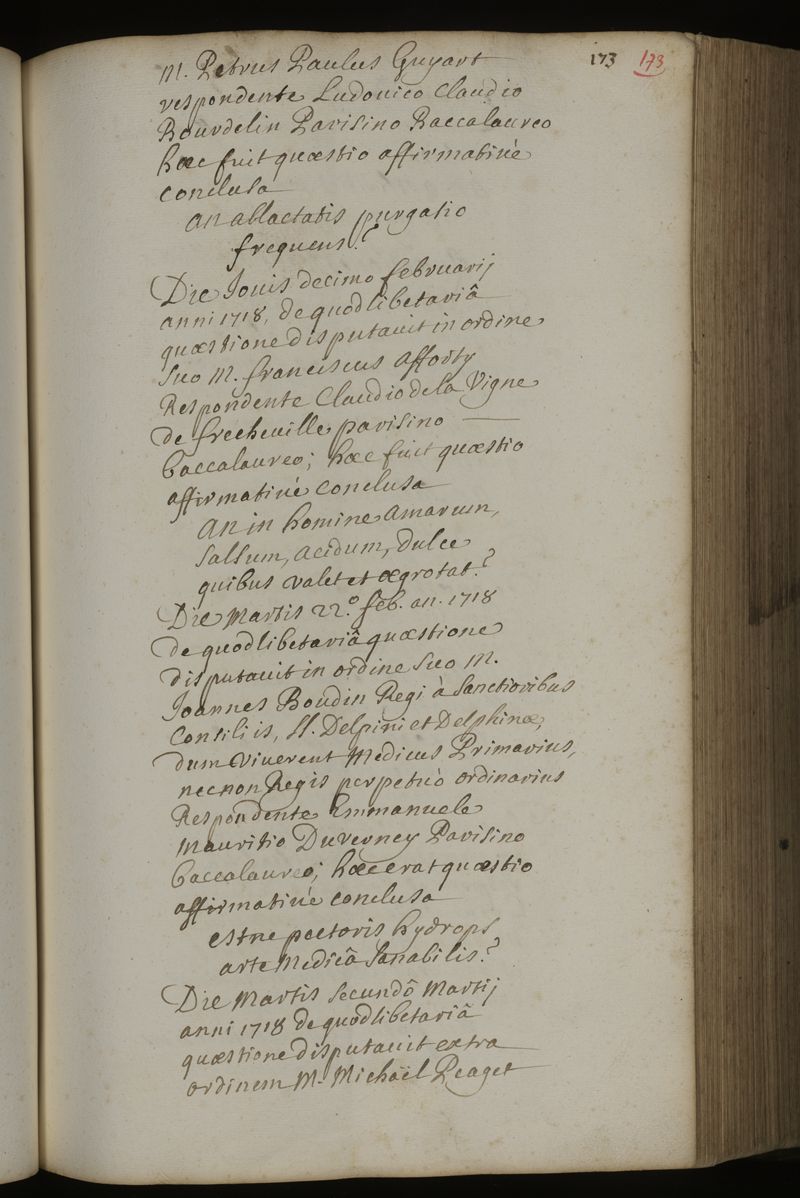 173 173
M. Petrus Paulus Guyart
respondente Ludovico Claudio
Bourdelin Parisino Baccalaureo
hæc fuit quæstio affirmativè
conclusa
an ablactatis purgatio
frequens?
Die Jouis decimo februarij
anni 1718, de quodlibetariâ
quæstione disputauit in ordine
suo M. franciscus Afforty
Respondente Claudio de la Vigne
de frecheuille parisino
baccalaureo; hæc fuit quæstio
affirmatiuè conclusa
an in homine amarum,
salsum, acidum, dulce
quibus valet et ægrotat?
Die Martis 22.º feb. an. 1718
de quodlibetariâ quæstione
disputauit in ordine suo M.
Joannes Boudin Regi à Sanctioribus
Consiliis, SS. Delpini et Delphinæ,
dum viuerent Medicus Primarius,
necnon Regis perpetuò ordinarius
Respondente Emmanuele
Mauritio Duverney Parisino
baccalaureo; hæc erat quæstio
affirmatiuè conclusa
estne pectoris hydrops
arte Medicâ sanabilis?
Die Martis secundô Martij
anni 1718 de quodlibetariâ
quæstione disputauit extra
ordinem M. Michaël Peaget